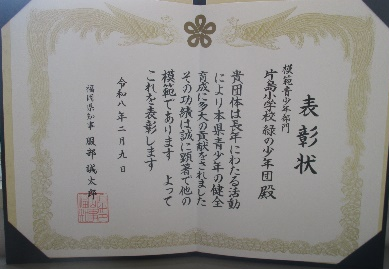 表彰状
模範青少年部門
片島小学校 緑の少年団 殿
貴団体は長年にわたる活動
により本県青少年の健全
育成に多大の貢献をされました
その功績は誠に顕著で他の
模範であります よって
これを表彰します
令和八年二月九日
福岡県知事 服部 誠太郎